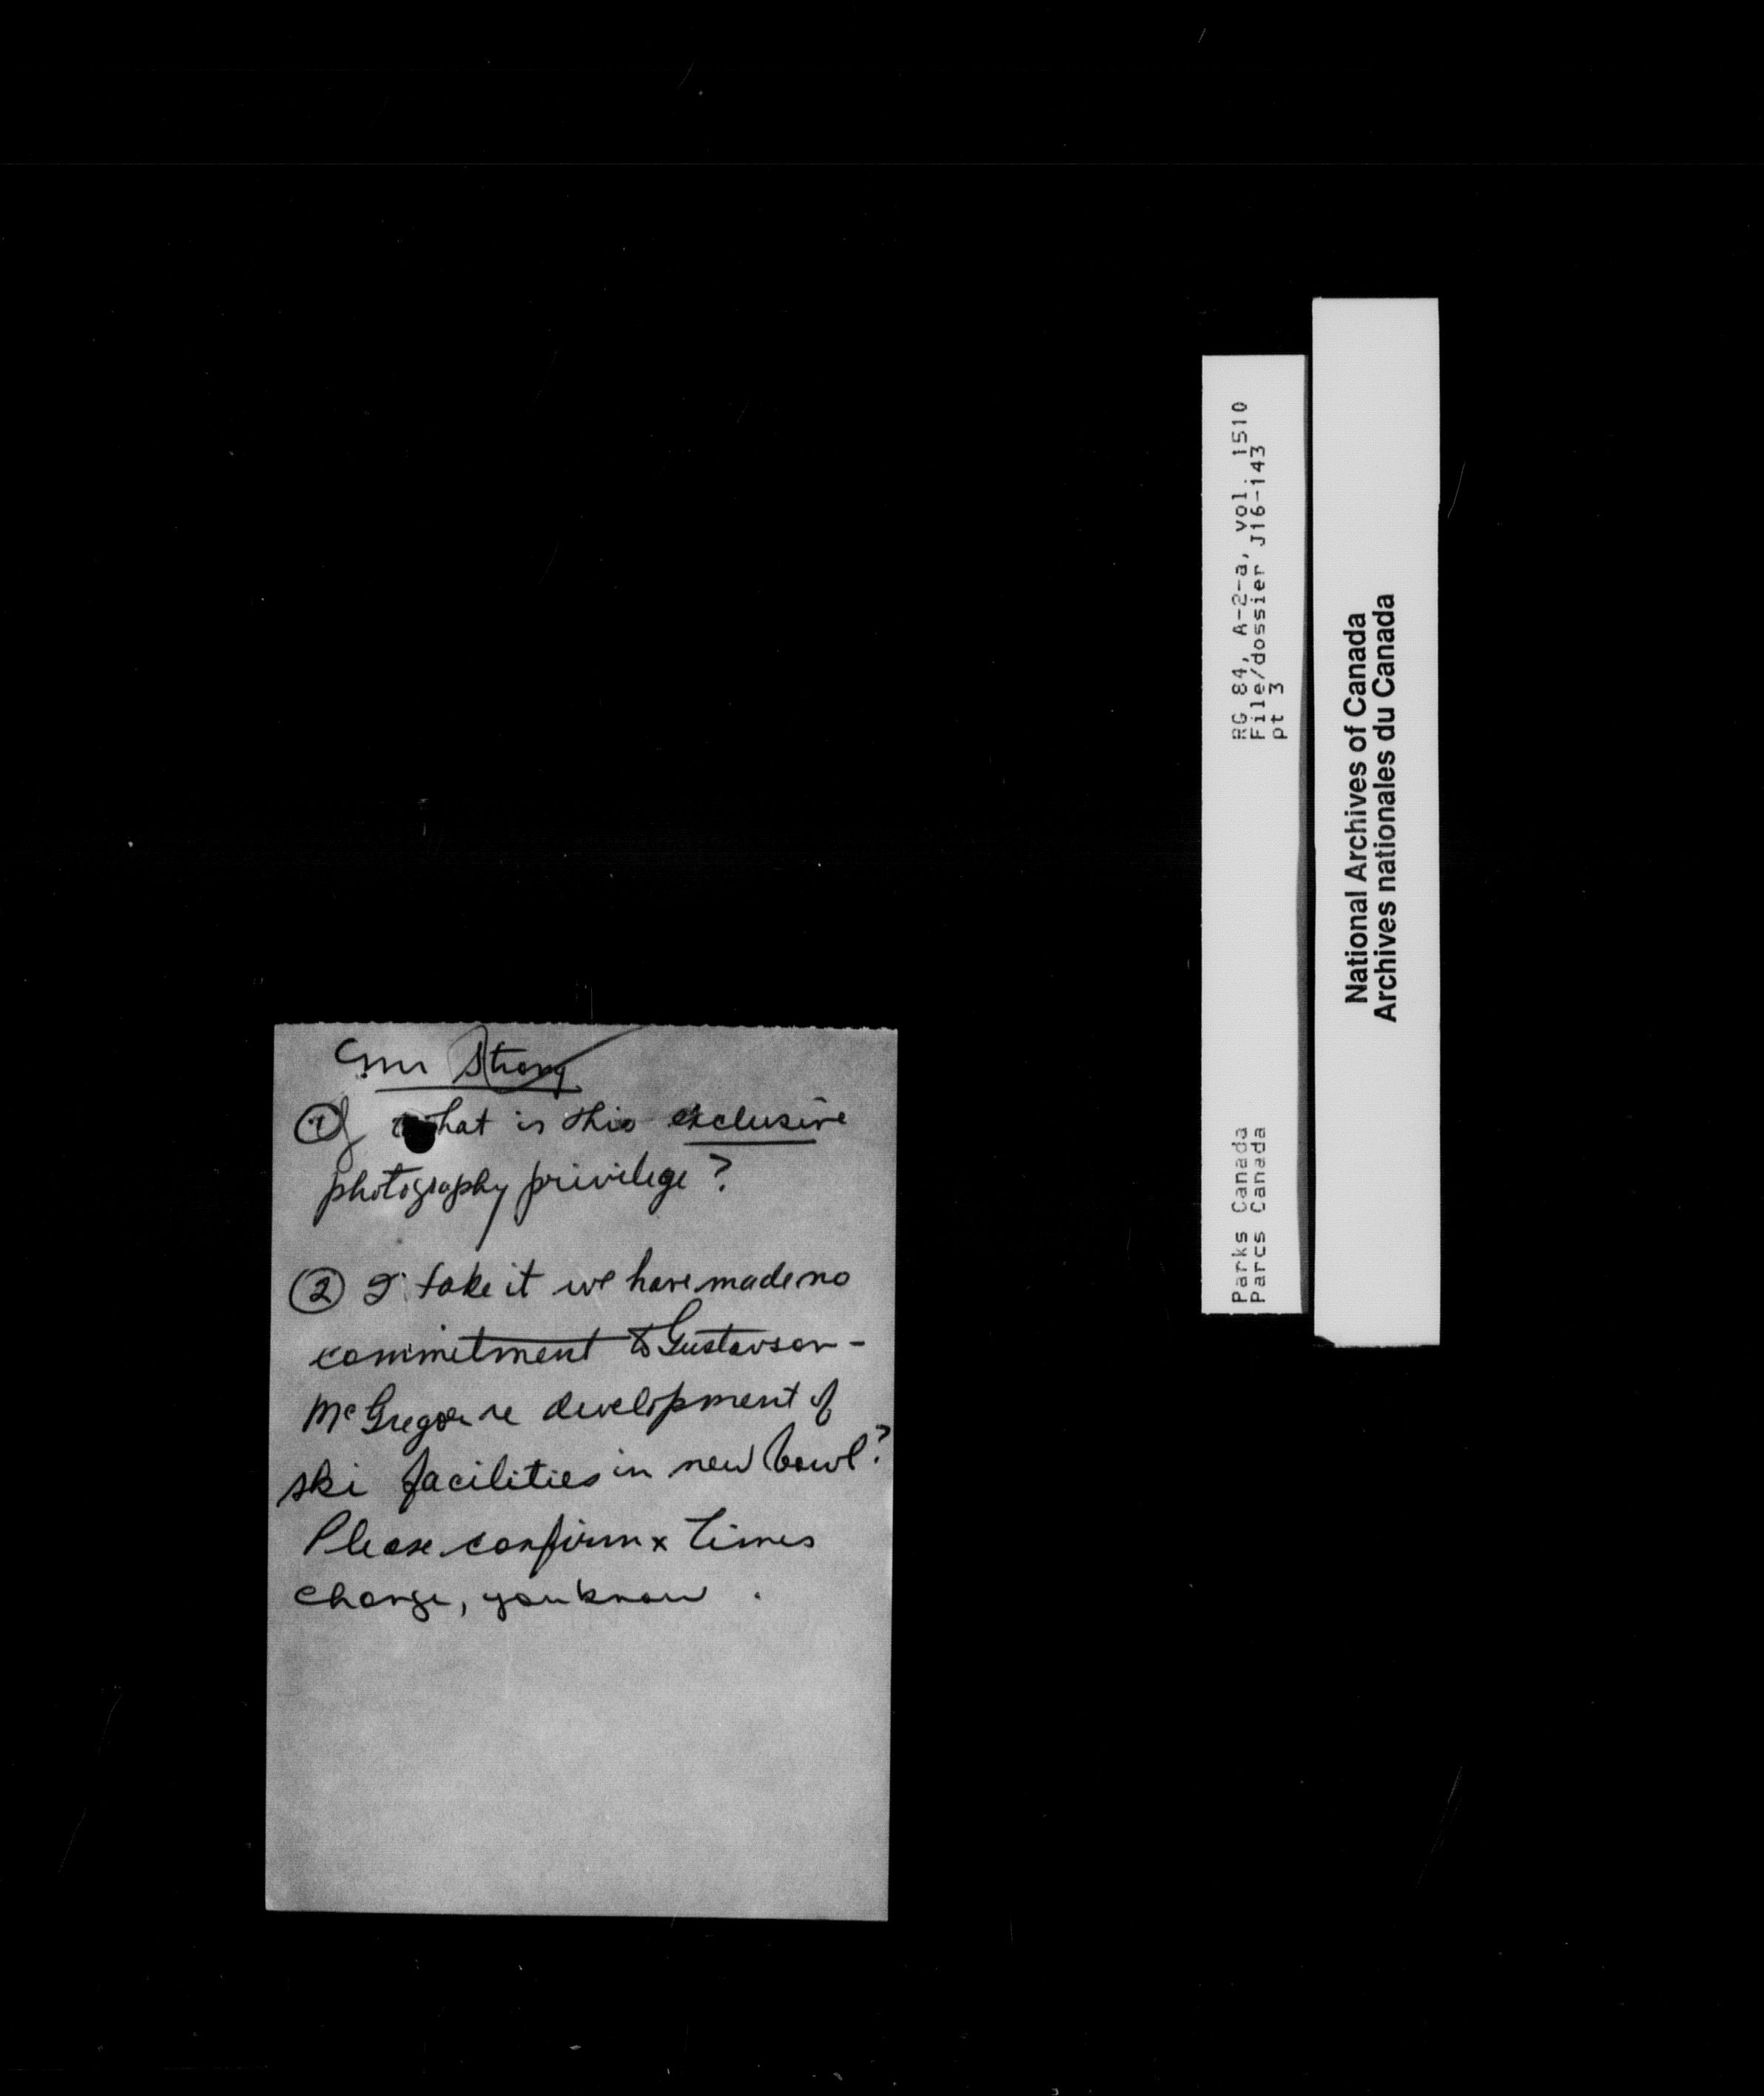 Mr Strong
① What is this exclusive
photography privilege?
② I take it we have made no
commitment to Gustavson-
McGregor re development of
ski facilities in new bowl?
Please confirm x Times
change, you know.
RG 84, A-2-a, vol. 1510
File/dossier J16-143
pt 3
Parks Canada
Parcs Canada
National Archives of Canada
Archives nationales du Canada